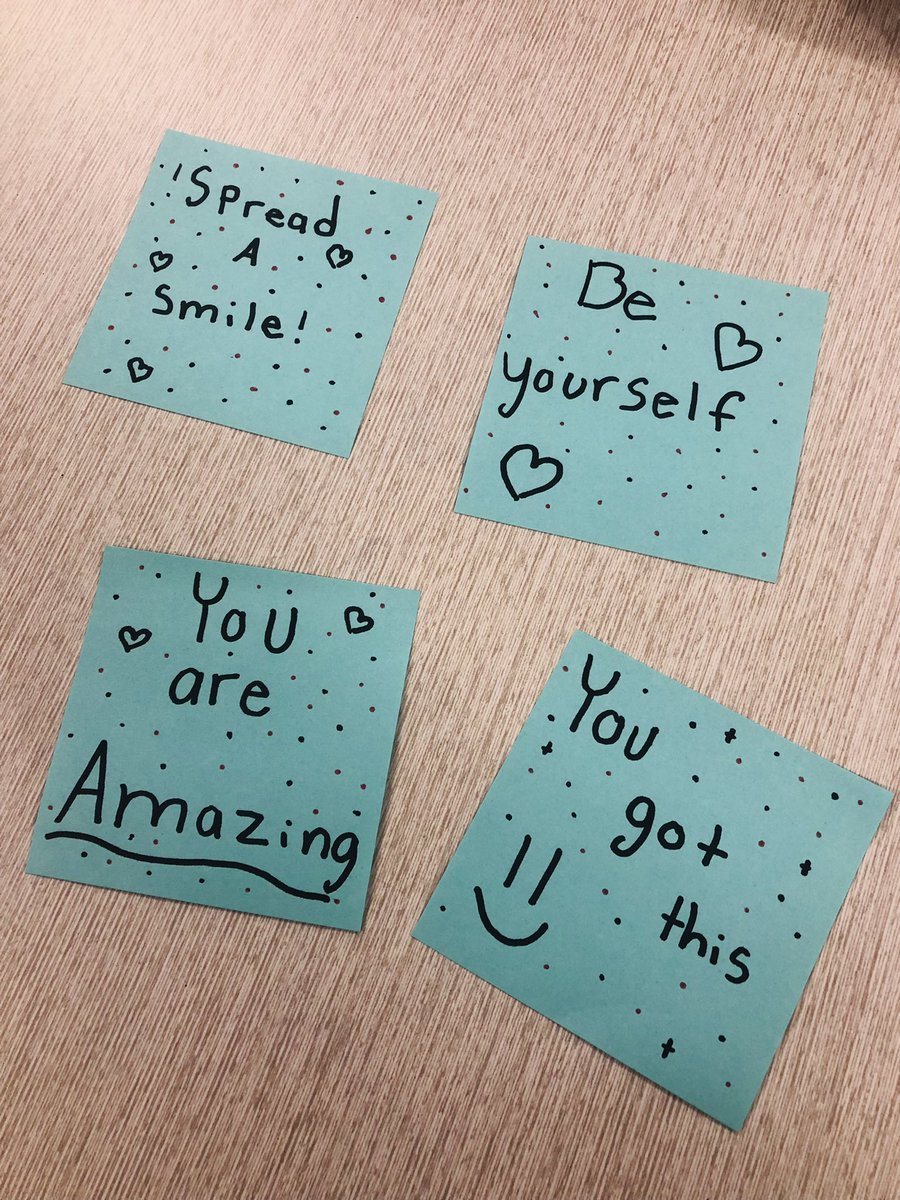 Spread
A
Smile!
Be
yourself
You
are
Amazing
You
got
this